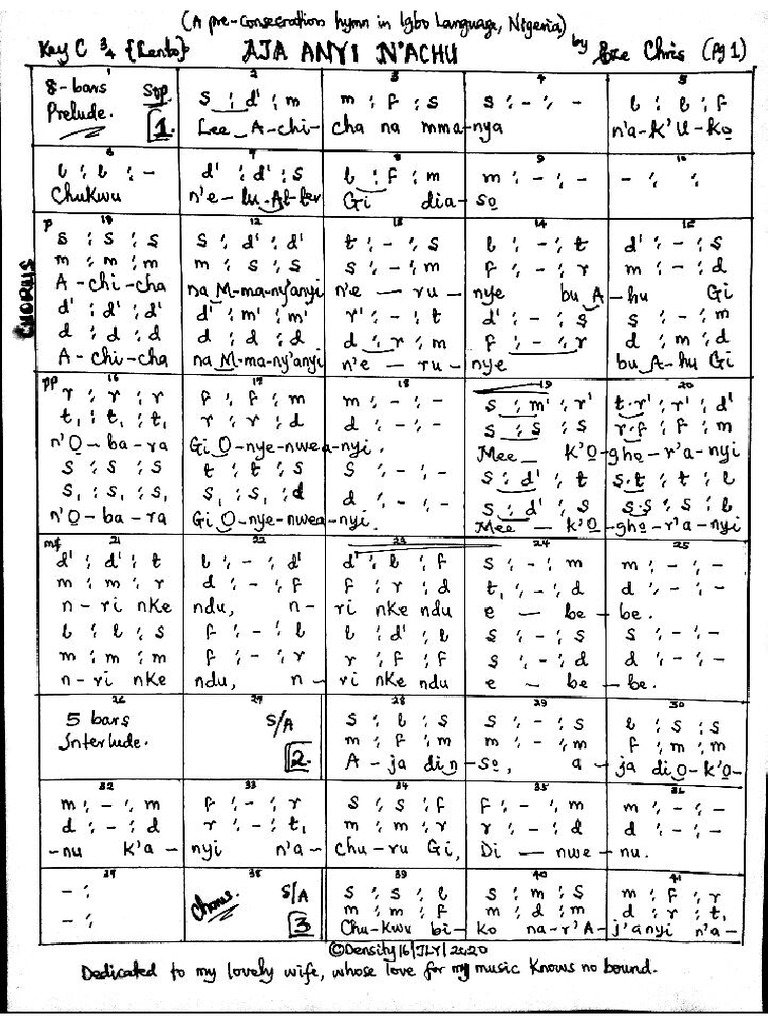 (A pre-consecration hymn in Igbo Language, Nigeria)
Key C 3/4 {Lento} AJA ANYI N'ACHU by Eze Chris (Pg 1)
1 2 3 4 5
8-bars Sop s : d' : m m : f : s s : - : - l : l : f
Prelude. 1. Lee A-chi- cha na mma-nya n'a-k'U-ko
6 7 8 9 10
l : l : - d' : d' : s l : f : m m : - : - - : :
Chukwu n'e-lu Al-ter Gi dia-so
CHORUS
p 11 12 13 14 15
s : s : s s : d' : d' t : - : s l : - : t d' : - : s
m : m : m m : s : s s : - : m f : - : r m : - : d
A-chi-cha na M-ma-ny'anyi n'e — ru- nye bu A-hu Gi
d' : d' : d' d' : m' : m' r' : - : t d' : - : s s : - : m
d : d : d d : d : d d : r : m f : - : r d : m : d
A-chi-cha na M-ma-ny'anyi n'e — ru- nye bu A-hu Gi
pp 16 17 18 19 20
r : r : r f : f : m m : - : - s : m' : r' t.r' : r' : d'
t, : t, : t, r : r : d d : - : - s : s : s r.f : f : m
n'O-ba-ra Gi O-nye-nwea-nyi. Mee — k'O-gho-r'a-nyi
s : s : s t : t : s s : - : - s : d' : t s.t : t : l
s, : s, : s, s, : s, : d d : - : - s : d' : s s.s : s : l
n'O-ba-ra Gi O-nye-nwea-nyi. Mee — k'O-gho-r'a-nyi
mf 21 22 23 24 25
d' : d' : t l : - : d' d' : l : f s : - : m m : - : -
m : m : r d : - : f f : r : d t, : - : d d : - : -
n-ri nke ndu, n- ri nke ndu e — be-be.
l : l : s f : - : l l : d' : l s : - : s s : - : -
m : m : m f : - : r r : f : f s : - : d d : - : -
n-ri nke ndu, n- ri nke ndu e — be-be.
26 27 28 29 30
5 bars S/A s : l : s s : - : s l : s : s
Interlude. 2. m : f : m m : - : m f : m : m
A-ja din-so, a-ja di O-k'o-
32 33 34 35 36
m : - : m f : - : r s : s : f f : - : m m : - : -
d : - : d r : - : t, m : m : r r : - : d d : - : -
-nu k'a-nyi n'a-chu-ru Gi, Di — nwe-nu.
37 38 39 40 41
- : Chorus S/A s : s : l s : m : s m : f : r
- : 3 m : m : f m : d : m d : r : t,
Chu-kwu bi-ko na-r'A-j'anyi n'a-
©Density16|JLY|2020
Dedicated to my lovely wife, whose love for my music knows no bound.